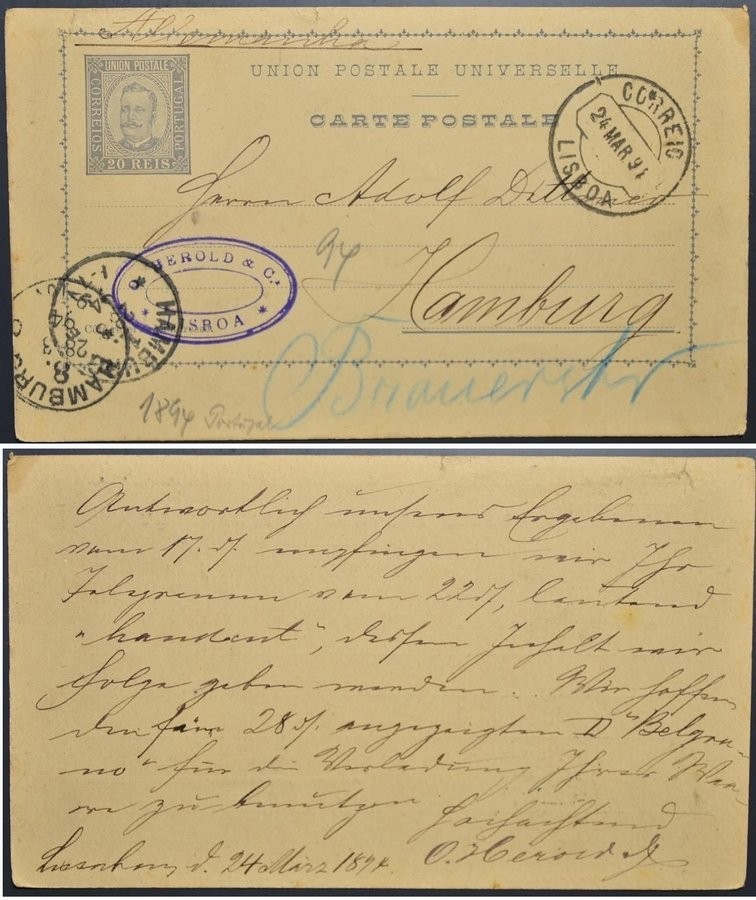 Allemanha
UNION POSTALE UNIVERSELLE
CARTE POSTALE
UNION POSTALE
CORREIOS
PORTUGAL
20 REIS
CORREIO
24 MAR 94
LISBOA
Herrn Adolf
94
Hamburg
HEROLD & Cª
LISBOA
HAMBURG
28.3.94
HAMBURG
1894 Portugal
Antwortlich unseres Ergebenen
vom 17. d/. empfingen wir Ihr
Telegramm vom 22 d/, lautend
„handcut", dessen Inhalt wir
Folge geben werden. Wir hoffen
den für 28 d/. angezeigten D "Belgra-
no" für die Verladung Ihrer Waa-
re zu benutzen
Hochachtend
Lissabon, d. 24 März 1894.
O. Herold &